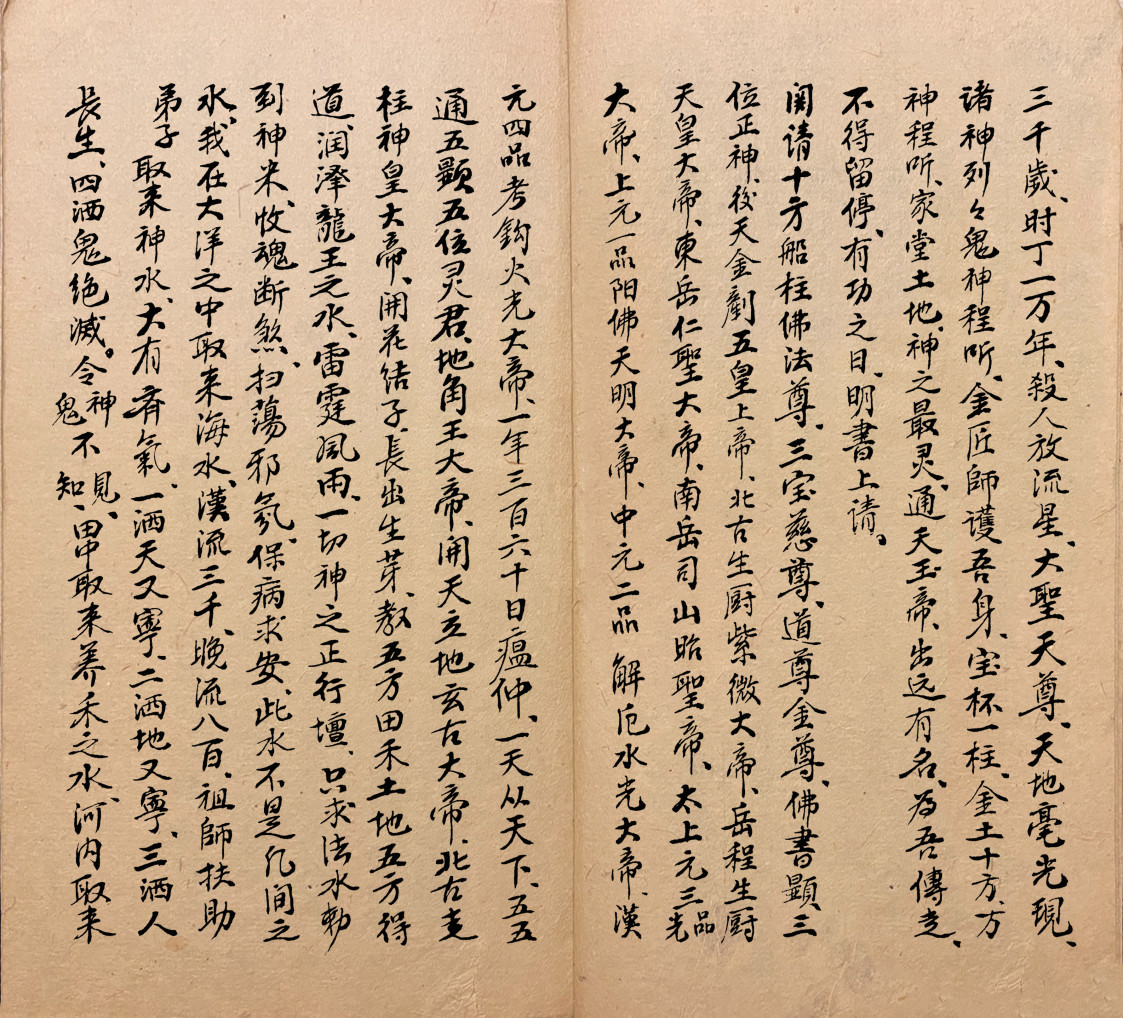 三千歲、时丁一万年、殺人放流星、大聖天尊、天地毫光現、
诸神列々鬼神程听、金匠師護吾身、宝杯一柱、金土十方、方
神程听、家堂土地、神之最灵、通天玉帝、出远有名、為吾傳走、
不得留停、有功之日、明書上请。
関请十方船柱佛法尊、三宝慈尊、道尊金尊、佛書顯、三
位正神、後天金劑五皇上帝、北古生厨紫微大帝、岳程生厨
天皇大帝、東岳仁聖大帝、南岳司山昭聖帝、太上元三品光
大帝、上元一品阳佛天明大帝、中元二品 解厄水光大帝、漢
元四品考鈎火光大帝、一年三百六十日瘟仲、一天从天下、五五
通五顕五位灵君、地角王大帝、開天立地玄古大帝、北古支
柱神皇大帝、開花结子、長出生芽、教五方田禾土地五方得
道、润泽龍王之水、雷霆风雨、一切神之正行壇、只求法水勅
到神米、收魂断煞、扫蕩邪気、保病求安、此水不是凡间之
水、我在大洋之中取来海水、漢流三千、晚流八百、祖師扶助
弟子 取来神水、大有斉氣、一洒天又寧、二洒地又寧、三洒人
長生、四洒鬼绝滅。令神鬼不見知、田中取来养禾之水、河内取来